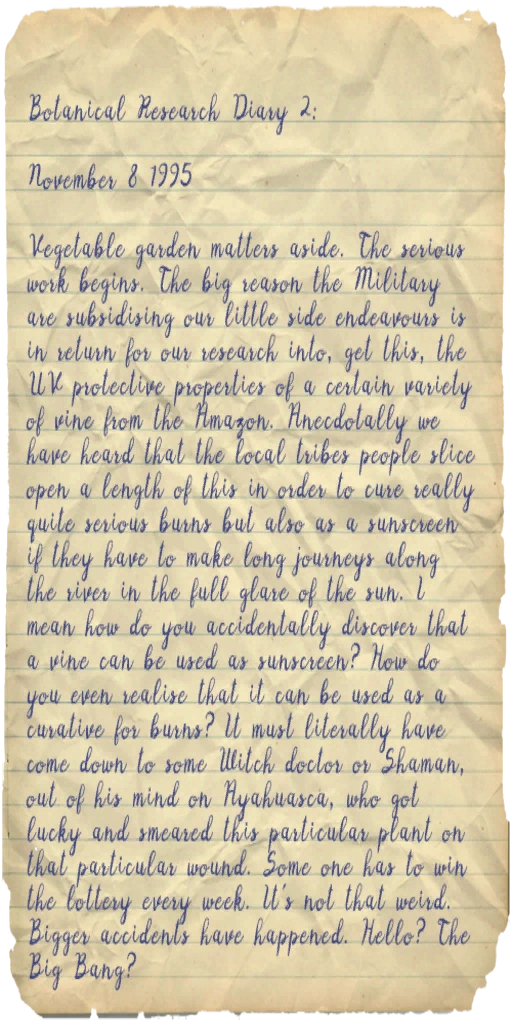 Botanical Research Diary 2:
November 8 1995
Vegetable garden matters aside. The serious
work begins. The big reason the Military
are subsidising our little side endeavours is
in return for our research into, get this, the
UV protective properties of a certain variety
of vine from the Amazon. Anecdotally we
have heard that the local tribes people slice
open a length of this in order to cure really
quite serious burns but also as a sunscreen
if they have to make long journeys along
the river in the full glare of the sun. I
mean how do you accidentally discover that
a vine can be used as sunscreen? How do
you even realise that it can be used as a
curative for burns? It must literally have
come down to some Witch doctor or Shaman,
out of his mind on Ayahuasca, who got
lucky and smeared this particular plant on
that particular wound. Some one has to win
the lottery every week. It's not that weird.
Bigger accidents have happened. Hello? The
Big Bang?